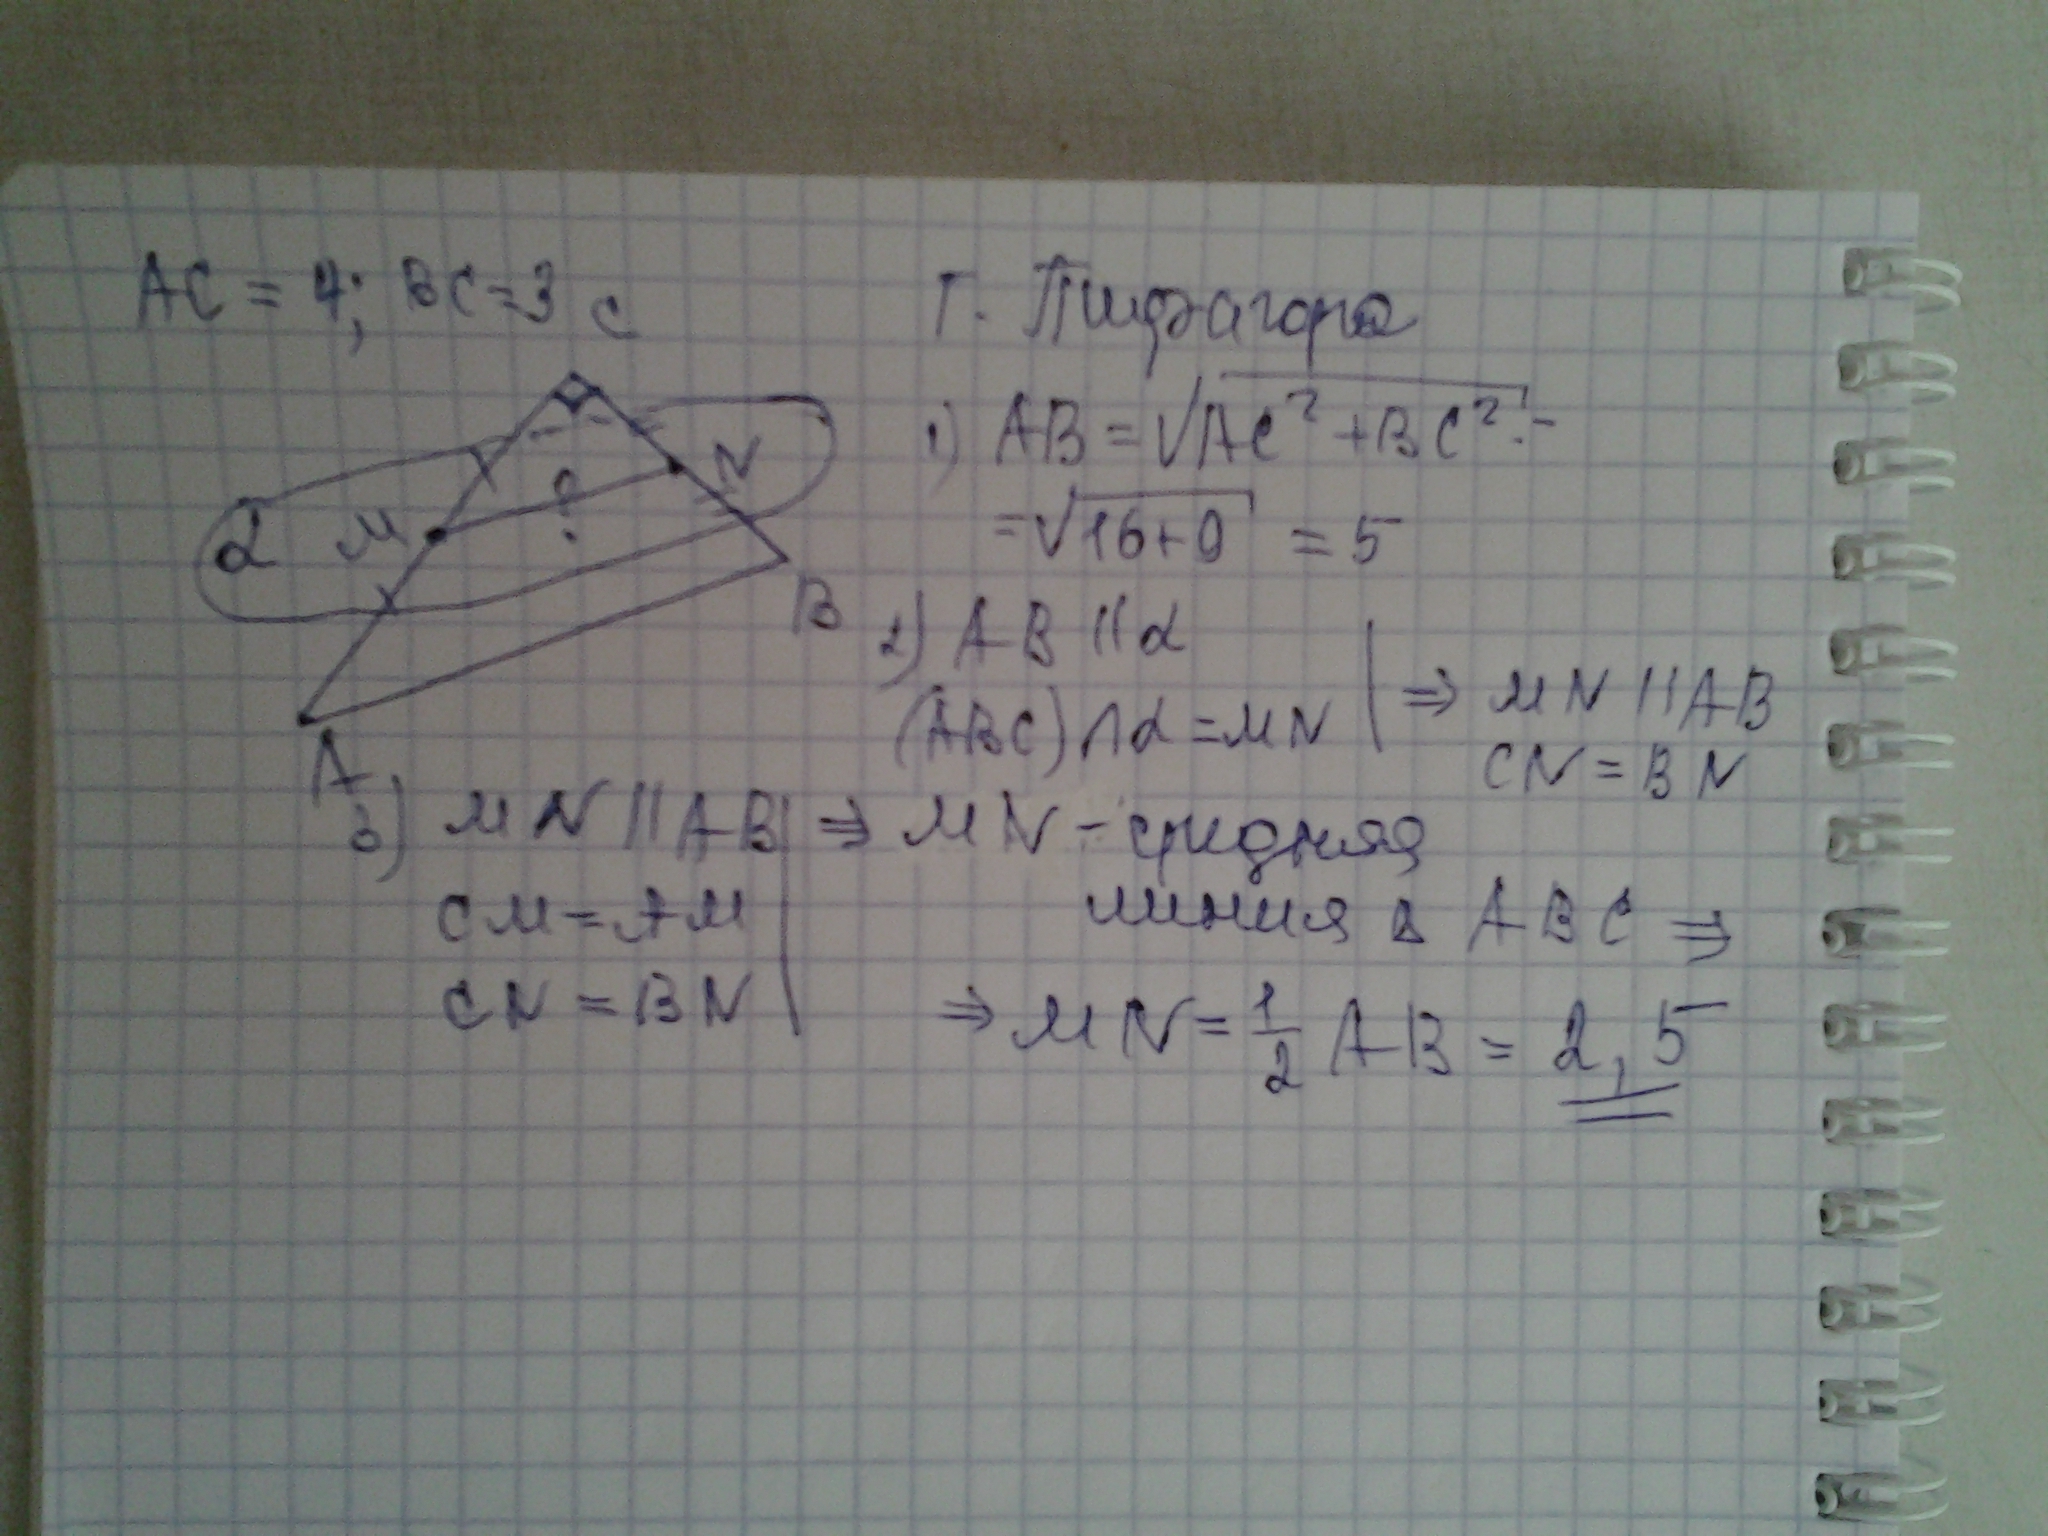 AC = 4; BC = 3
C
α
M
?
N
B
A
Т. Пифагора
1) AB = √AC² + BC² =
= √16+9 = 5
2) AB || α
(ABC) ∩ α = MN
⇒ MN || AB
CN = BN
3) MN || AB ⇒ MN - средняя
CM = AM
линия в ABC ⇒
CN = BN
⇒ MN = 1/2 AB = 2,5